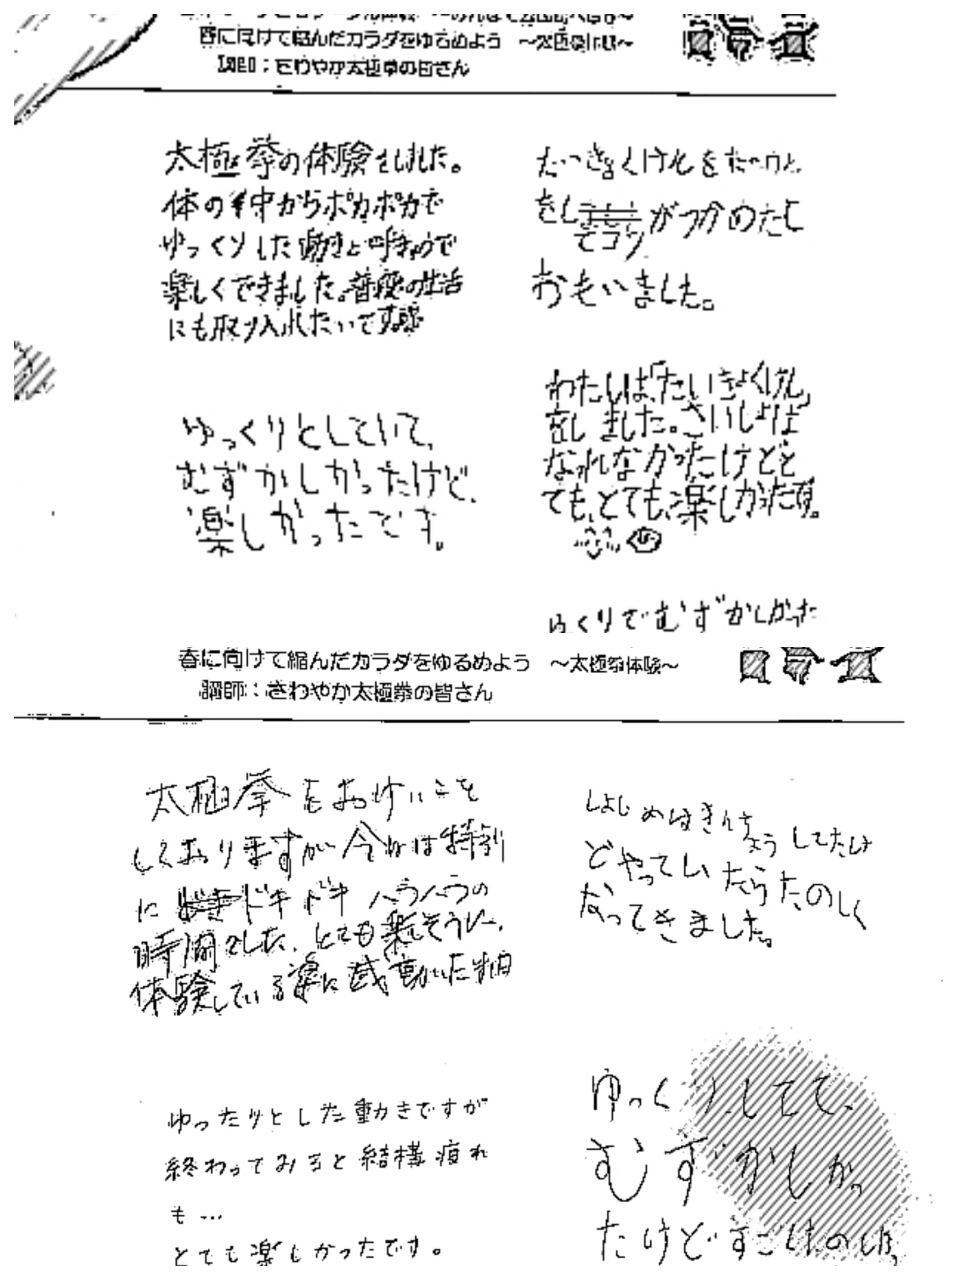 春に向けて縮んだカラダをゆるめよう ～太極拳体験～
講師：さわやか太極拳の皆さん
太極拳の体験をしました。
体の中からポカポカで
ゆっくりした動きと呼きゅうで
楽しくできました。普段の生活
にも取り入れたいです。
たいきょくけんを
をし てコツ がつかめたと
おもいました。
ゆっくりとしていて、
むずかしかったけど、
楽しかったです。
わたしは、「たいきょくけん」
をしました。さいしょは
なれなかったけどと
ても、とても、楽しかったです。
ゆくりでむずかしかった
春に向けて縮んだカラダをゆるめよう ～太極拳体験～
講師：さわやか太極拳の皆さん
太極拳をおけいこを
しておりますが 今日は特別
に ドキドキ ハラハラの
時間でした。とても楽しそうに、
体験している姿に感動いたしました
しょじめはきんちょうしてたけ
どやってしいたらたのしく
なってきました。
ゆったりとした動きですが
終わってみると結構疲れ
も…
とても楽しかったです。
ゆっくりしてて、
むずかしかっ
たけどすごくたのしかった